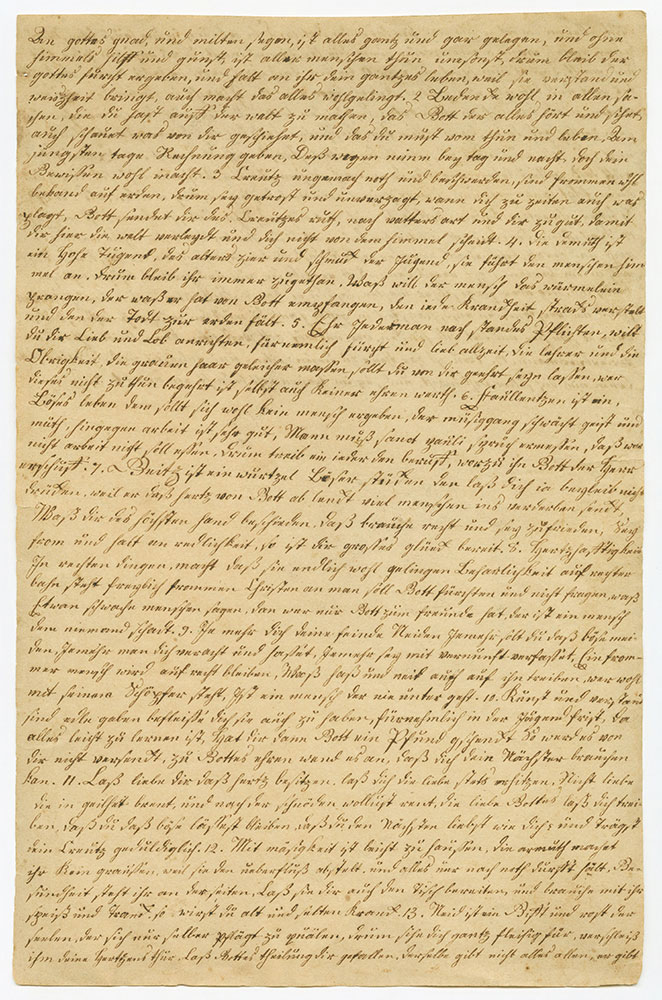 An gottes gnad, und milten segen, ist alles gantz und gar gelegen, und ohne
himmels hilff und gunst, ist aller menschen thun umsonst, drum bleib der
gottes furcht ergeben, und halt an ihr dein gantzes leben, weil sie verstand und
weißheit bringt, auch macht das alles wohlgelingt. 2 Bedencke wohl in allen sa-
chen, die du hast auff der welt zu machen, das Gott der alles hört und sihet,
auch schauet was von dir geschiehet, und das du must vom thun und leben, Am
jungsten tage Rechnung geben, Deß wegen nimm bey tag und nacht, doch dein
Gewissen wohl in acht. 3 Creutz ungemach noth und beschwerden, sind frommen wohl
bekand auf erden, drum sey getrost und unverzagt, wann dich zu zeiten auch was
plagt, Gott sendet dir des Creutzes ruth, nach vatters art und dir zu gut, damit
dir hier die welt verleydt und dich nicht von dem himmel scheidt. 4. Die demuth ist
ein hohe Tugent, des alters zier und schmuck der Jugend, sie führt den menschen him-
mel an. drum bleib ihr immer zugethan, Waß will der mensch das würmelein
prangen, der waß er hat von Gott empfangen, den iede Kranckheit, stracks verstelt
und den der Todt zur erden fält. 5. Ehr Jederman nach standes Pflichten, wilt
du dir Lieb und Lob anrichten, fürnemlich fürcht und lieb allzeit, die lehrer und die
Obrigkeit, die grauen haar geleicher massen, sollt du von dir geehrt seyn lassen, wer
dieses nicht zu thun begehrt ist selbst auch keiner ehren werth. 6. Faullentzen ist ein
Böses leben dem sollt sich wohl kein mensch ergeben, der müssiggang schwächt geist und
muth, hingegen arbeit ist sehr gut, Mann muß sanct pauli spruch ermessen, daß wer
nicht arbeit nicht soll essen. drum treib ein ieder den beruff, worzu ihn Gott der Herr
erschuff. 7. Geitz ist ein wurtzel Böser stücken den laß dich ia beyleib nicht
drücken, weil er daß hertz von Gott ab lenckt viel menschen ins verderben senckt,
Waß dir des höchsten hand beschieden, daß brauche recht und sey zufrieden, Sey
from und halt an redlichkeit, so ist dir grosses glück bereit. 8. Hertzhafftigkeit
In rechten dingen, macht daß sie endlich wohl gelingen Beharlichkeit auf rechter
bahn steht freylich frommen Christen an man soll Gott fürchten und nicht fragen, waß
Etwan schwache menschen sagen, dan wer nur Gott zum freunde hat, der ist ein mensch
dem niemand schadt. 9. Je mehr dich deine feinde Neiden jemehr solt du daß böse mei-
den, Jemehr man dich veracht und hasset, Jemehr sey mit vernunft verfasset, Ein from-
mer mensch wird aufrecht bleiben, Waß haß und neid auch auf ihn treiben, wer wohl
mit seinem Schöpfer steht, Ist ein mensch der nie unter geht. 10. Kunst und verstand
sind edle gaben befleisse dich sie auch zu haben, fürnehmlich in der Jugend frist, da
alles leicht zu lernen ist, hat dir dann Gott ein Pfund geschenckt So werd es von
dir nicht versenckt, zu Gottes ehren wend es an, daß dich dein Nächster brauchen
kan. 11. Laß liebe dir daß hertz besitzen, laß dich die liebe stets erhitzen, Nicht liebe
die in geilheit brent, und nach der schnöden wollust rent, die liebe Gottes laß dich trei-
ben, daß du daß böse lässest bleiben, daß du den Nächsten liebst wie dich, und Trägst
dein Creutz geduldiglich. 12. Mit mäsigkeit ist leicht zu haussen, die armuth machet
ihr kein graussen, weil sie den ueberfluß abstelt, und alles nur nach noth durfft hält, Ge-
sundheit steht ihr an der seiten, Laß sie dir auch den Tisch bereiten, und brauche mit ihr
speiß und Tranck, so wirst du alt und selten Kranck. 13. Neid ist ein Gifft und rost der
seelen, der sich nur selber pflägt zu quälen, drum sihe dich gantz fleisig für, verschleiß
ihm deine hertzens thür. Laß Gottes theilung dir gefallen, derselbe gibt nicht alles allen, er gibt